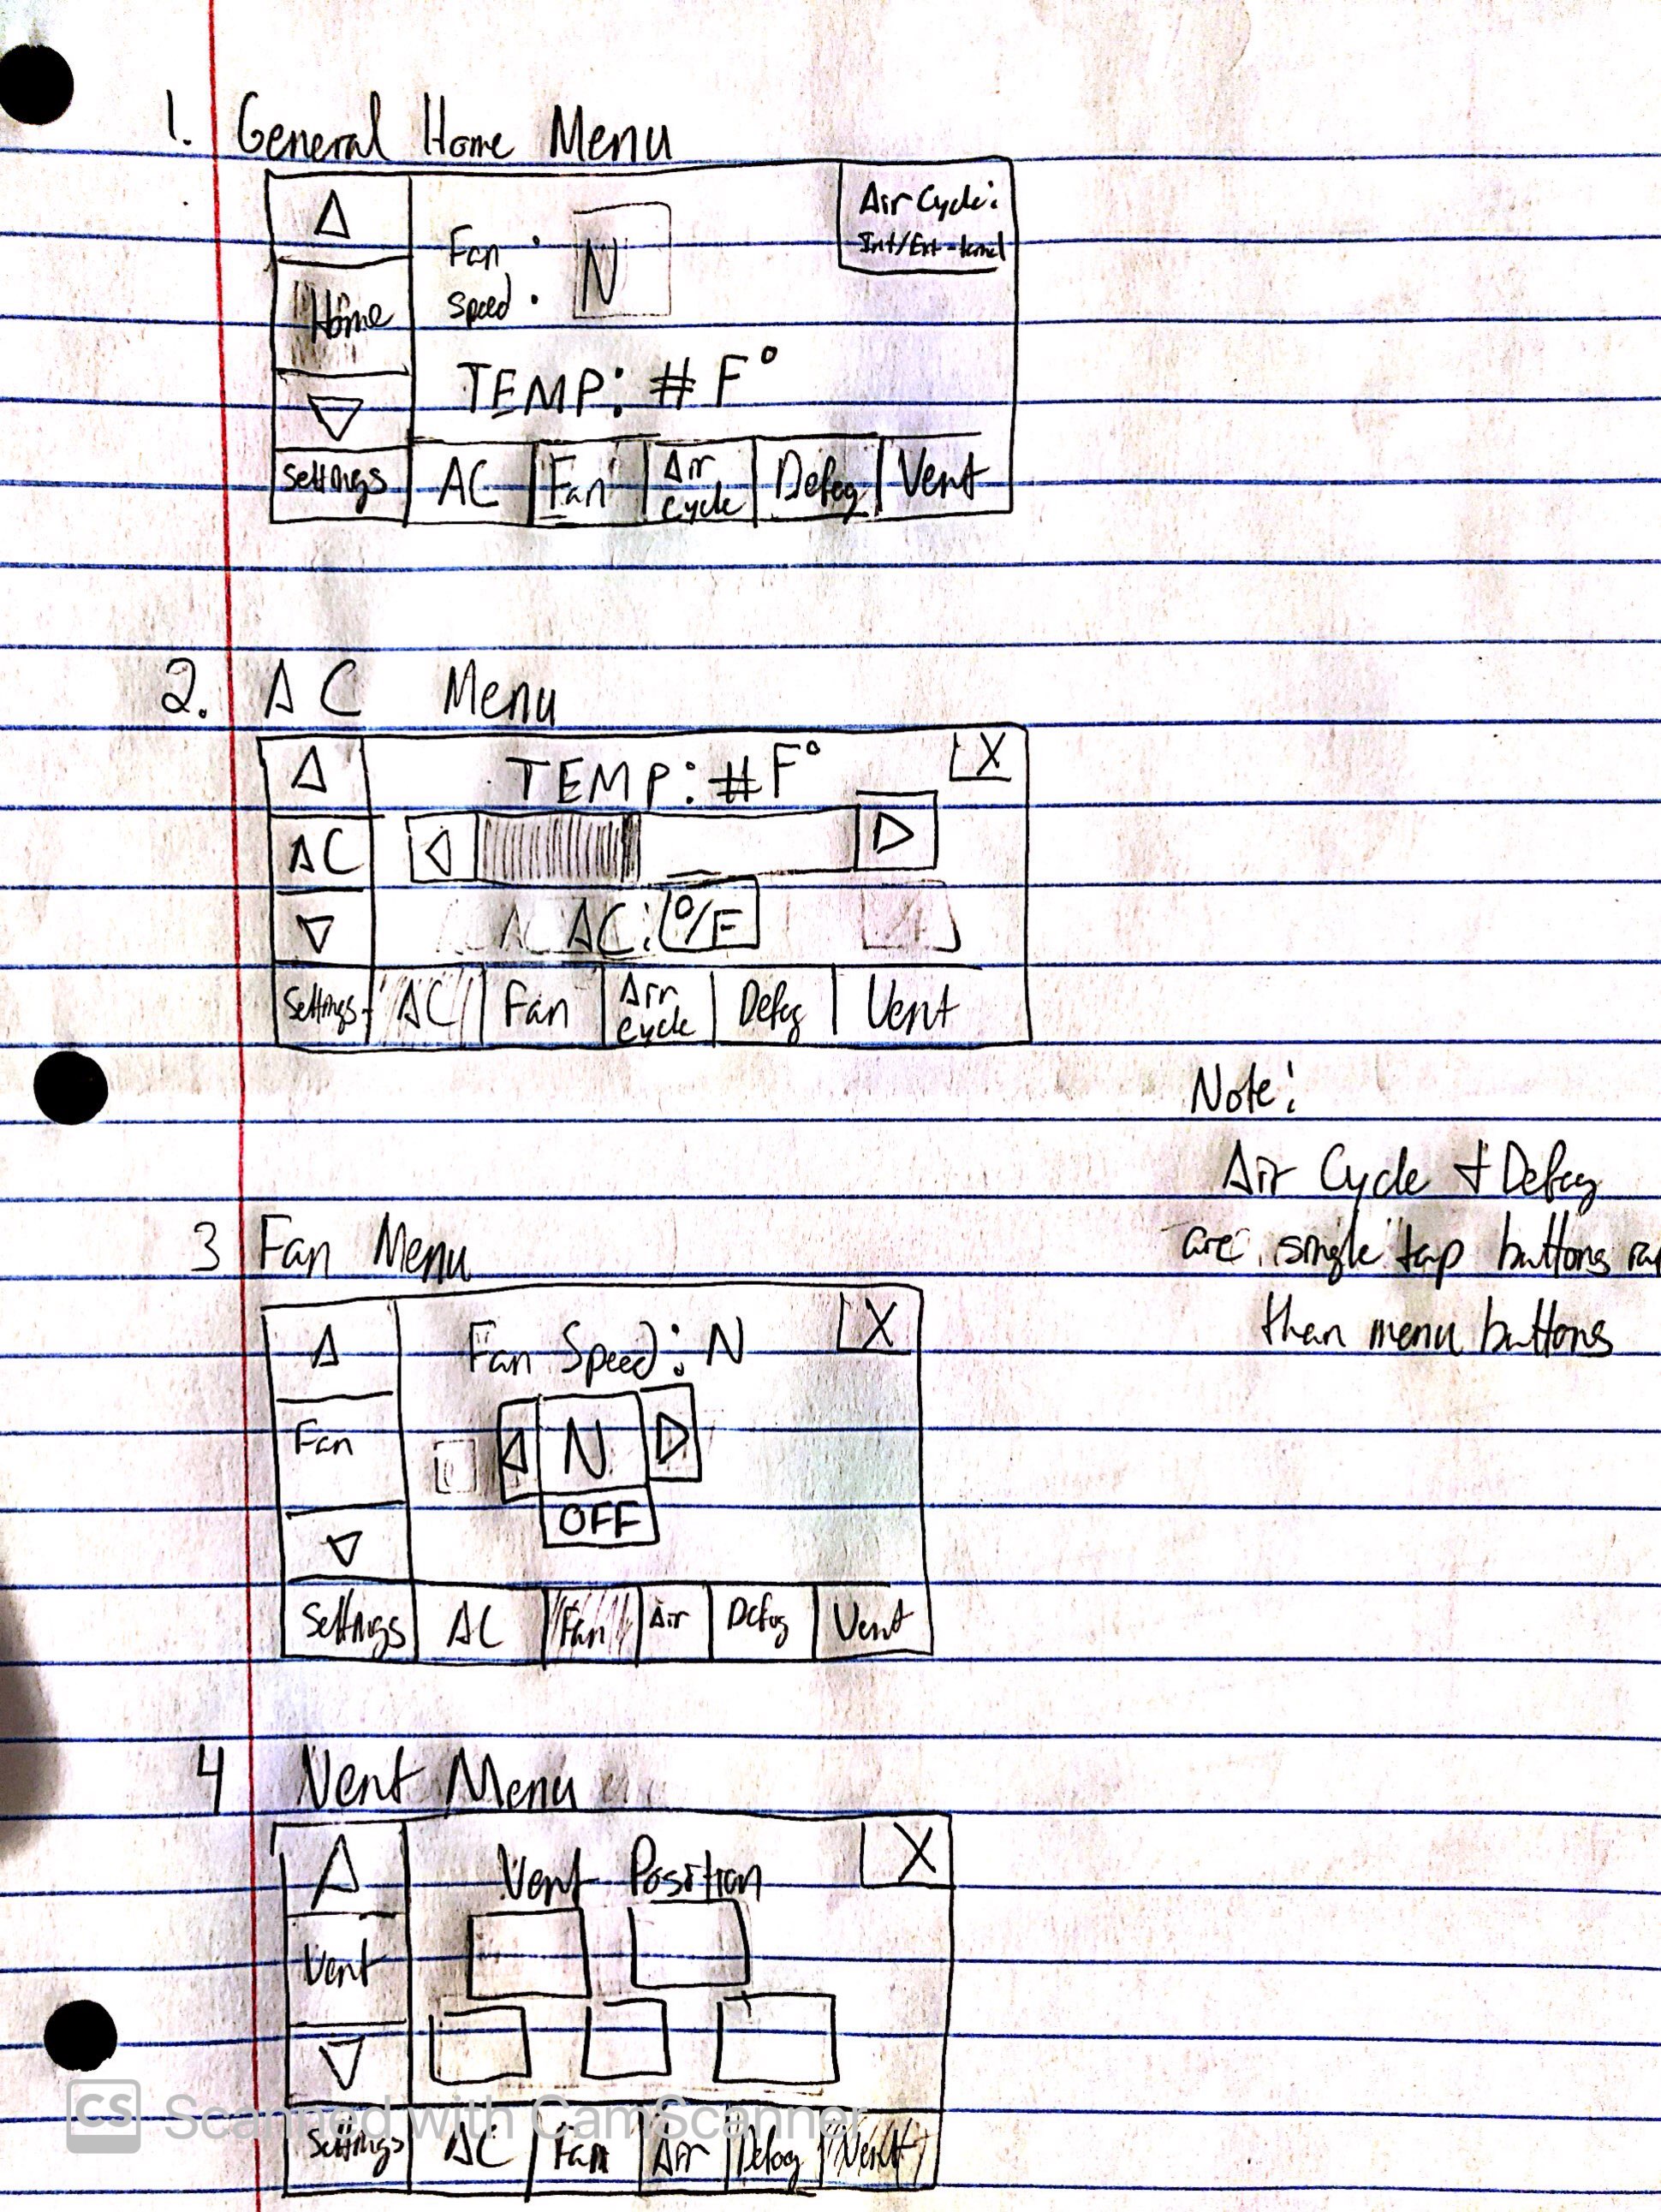 1. General Home Menu
Air Cycle:
Int/Ext-ternal
Fan
Speed : N
Home
TEMP: # F°
Settings AC Fan Air Cycle Defog Vent
2. AC Menu
TEMP: # F° X
AC
AC: O/F
Settings AC Fan Air Cycle Defog Vent
Note:
Air Cycle & Defog
are single tap buttons
than menu buttons
3 Fan Menu
Fan Speed: N X
Fan N
OFF
Settings AC Fan Air Defog Vent
4 Vent Menu
Vent Position X
Vent
Settings AC Fan Air Defog Vent
CS Scanned with CamScanner